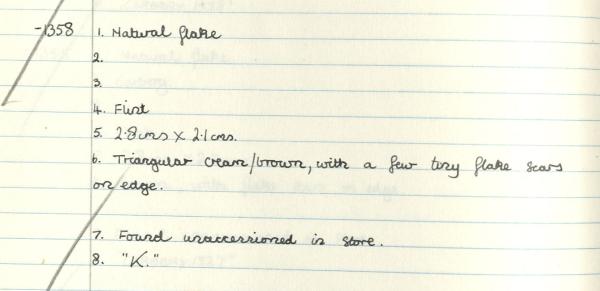 -1358 1. Natural flake
2.
3.
4. Flint
5. 2.8cms x 2.1cms.
6. Triangular cream/brown, with a few tiny flake scars
on edge.
7. Found unaccessioned in store.
8. "K."